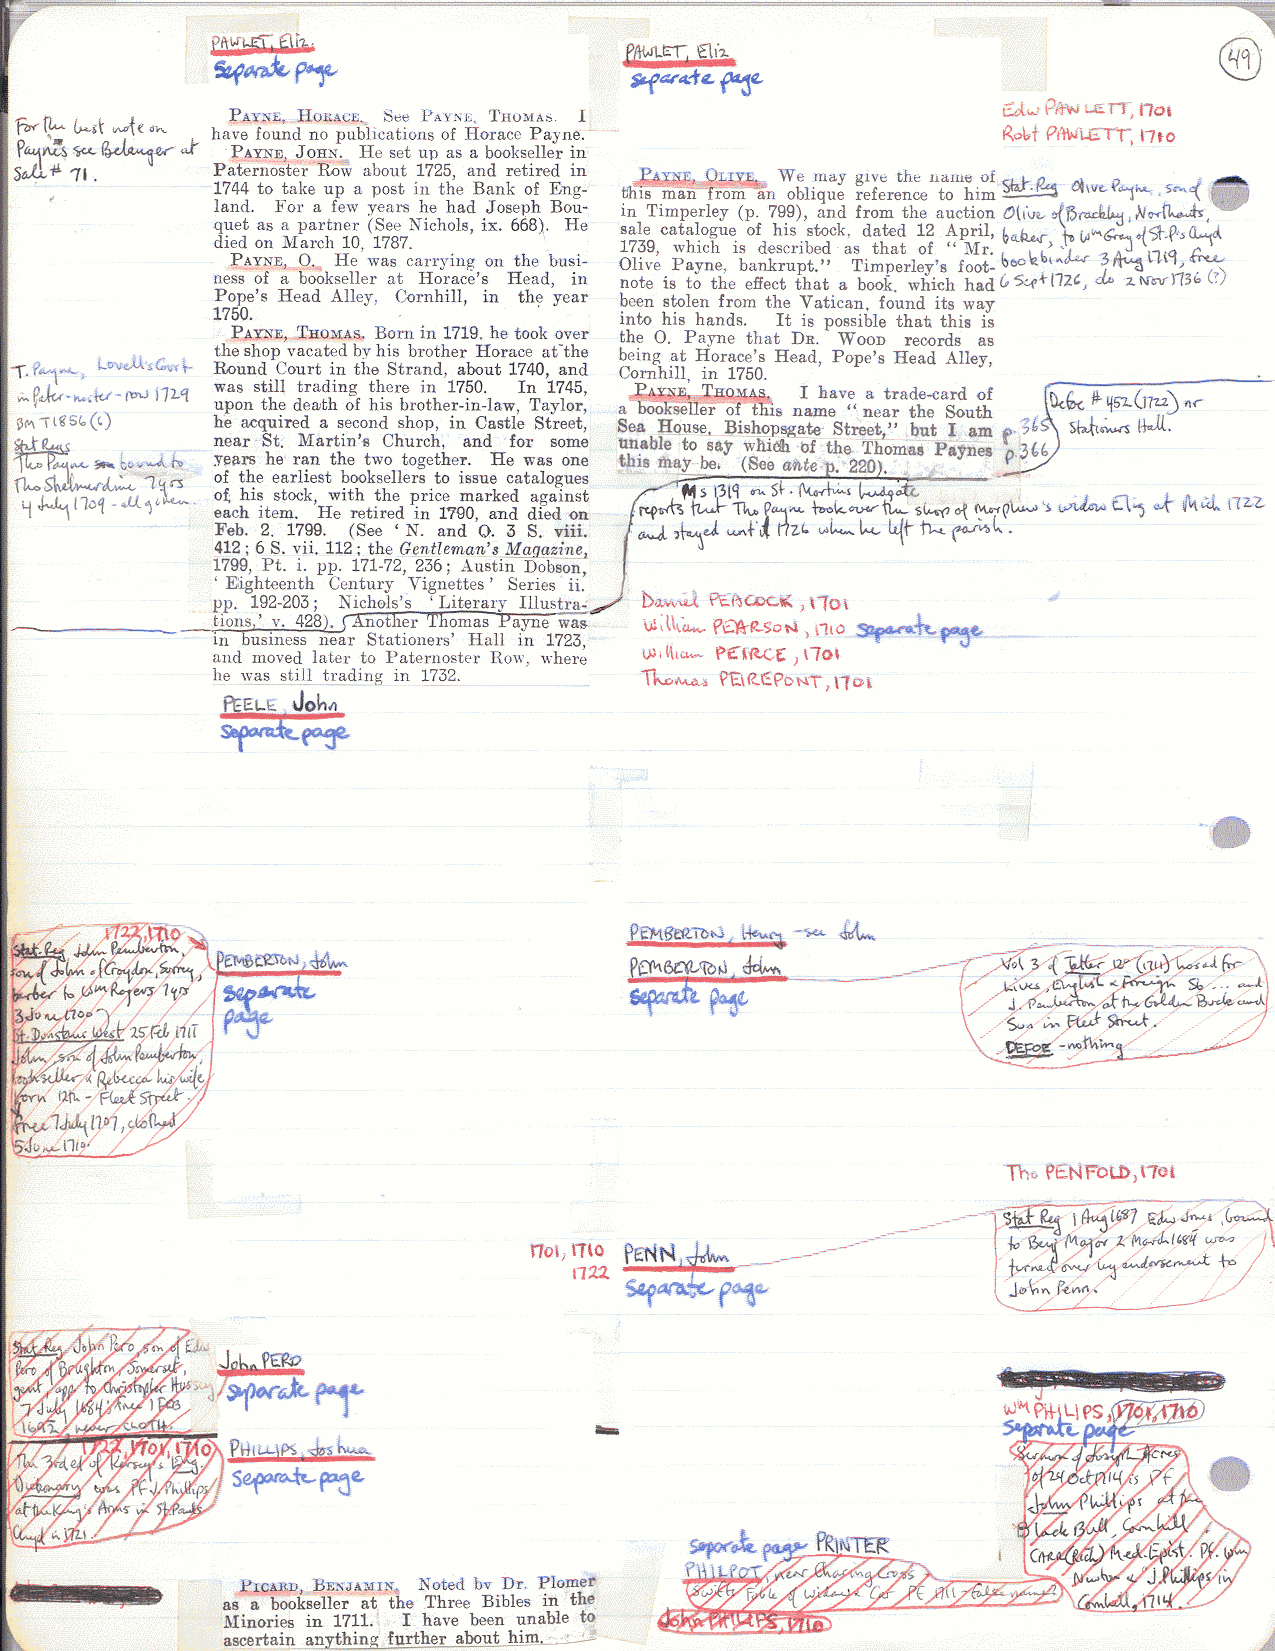 49
PAWLET, Eliz.
Separate page
For the best note on
Paynes see Belanger at
Sale # 71.
PAYNE, HORACE. See PAYNE, THOMAS. I
have found no publications of Horace Payne.
PAYNE, JOHN. He set up as a bookseller in
Paternoster Row about 1725, and retired in
1744 to take up a post in the Bank of Eng-
land. For a few years he had Joseph Bou-
quet as a partner (See Nichols, ix. 668). He
died on March 10, 1787.
PAYNE, O. He was carrying on the busi-
ness of a bookseller at Horace's Head, in
Pope's Head Alley, Cornhill, in the year
1750.
PAYNE, THOMAS. Born in 1719, he took over
the shop vacated by his brother Horace at the
Round Court in the Strand, about 1740, and
was still trading there in 1750. In 1745,
upon the death of his brother-in-law, Taylor,
he acquired a second shop, in Castle Street,
near St. Martin's Church, and for some
years he ran the two together. He was one
of the earliest booksellers to issue catalogues
of his stock, with the price marked against
each item. He retired in 1790, and died on
Feb. 2, 1799. (See 'N. and Q. 3 S. viii.
412; 6 S. vii. 112; the Gentleman's Magazine,
1799, Pt. i. pp. 171-72, 236; Austin Dobson,
'Eighteenth Century Vignettes' Series ii.
pp. 192-203; Nichols's 'Literary Illustra-
tions,' v. 428). Another Thomas Payne was
in business near Stationers' Hall in 1723,
and moved later to Paternoster Row, where
he was still trading in 1732.
T. Payne, Lovell's Court
in Pater-noster-row 1729
BM T1856(6)
Stat Regs
Tho Payne bound to
Tho Shelmerdine 7yrs
4 July 1709 - all given
PEELE, John
Separate page
1722, 1710
Stat. Reg John Pemberton,
son of John of Croydon, Surrey,
barber to Wm Rogers 7yrs
3 June 1700
St. Dunstans West 25 Feb 1711
John, son of John Pemberton,
bookseller & Rebecca his wife
born 12th - Fleet Street.
free 7 July 1707, clothed
5 June 1710.
PEMBERTON, John
Separate
page
Stat Reg John Pero, son of Edw
Pero of Brughton, Somerset,
gent, app to Christopher Hussey
7 July 1684; free 1 Feb
1692, never CLOTH.
John PERO
separate page
1722, 1701, 1710
The 3rd ed of Kersey's Eng.
Dictionary was PF J. Phillips
at the King's Arms in St Pauls
Chyd in 1721.
PHILLIPS, Joshua
Separate page
PICARD, BENJAMIN. Noted by Dr. Plomer
as a bookseller at the Three Bibles in the
Minories in 1711. I have been unable to
ascertain anything further about him.
PAWLET, Eliz
separate page
Edw PAWLETT, 1701
Robt PAWLETT, 1710
PAYNE, OLIVE. We may give the name of
this man from an oblique reference to him
in Timperley (p. 799), and from the auction
sale catalogue of his stock, dated 12 April,
1739, which is described as that of "Mr.
Olive Payne, bankrupt." Timperley's foot-
note is to the effect that a book, which had
been stolen from the Vatican, found its way
into his hands. It is possible that this is
the O. Payne that DR. WOOD records as
being at Horace's Head, Pope's Head Alley,
Cornhill, in 1750.
Stat. Reg Olive Payne, son of
Olive of Brackley, Northants,
baker, to Wm Gray of St. P's Chyd
bookbinder 3 Aug 1719, free
6 Sept 1726, clo 2 Nov 1736 (?)
PAYNE, THOMAS. I have a trade-card of
a bookseller of this name "near the South
Sea House, Bishopsgate Street," but I am
unable to say which of the Thomas Paynes
this may be. (See ante p. 220).
p. 365
p. 366
Defoe # 452 (1722) nr
Stationers Hall.
Ms 1319 on St. Martins Ludgate
reports that Tho Payne took over the shop of Morphew's widow Eliz at Mich 1722
and stayed until 1726 when he left the parish.
Daniel PEACOCK, 1701
William PEARSON, 1710 separate page
William PEIRCE, 1701
Thomas PEIREPONT, 1701
PEMBERTON, Henry - see John
PEMBERTON, John
Separate page
Vol 3 of Tatler 12º (1711) has ad for
Lives, English & Foreign Sb ... and
J. Pemberton at the Golden Buck and
Sun in Fleet Street.
DEFOE - nothing
Tho PENFOLD, 1701
1701, 1710
1722
PENN, John
Separate page
Stat Reg 1 Aug 1687 Edw Jones, bound
to Benj Major 2 March 1684 was
turned over by endorsement to
John Penn.
Wm PHILIPS, 1701, 1710
Separate page
Sermon of Joseph Acres
of 24 Oct 1714 is PF
John Phillips at the
Black Bull, Cornhill
CARR (Rich) Med. Epist. Pf. Wm
Newton & J. Phillips in
Cornhill, 1714.
Separate page PRINTER
PHILPOT, near Charing Cross -
Swift's Fable of Widow & Cat PF 1711 - false name?
John PHILIPS, 1710